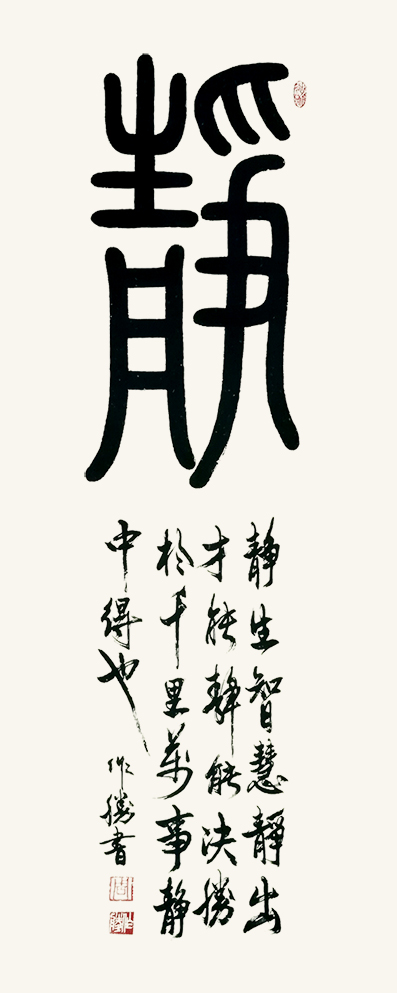 靜
靜生智慧靜出
才能靜能决勝
於千里萬事靜
中得也
作勝書